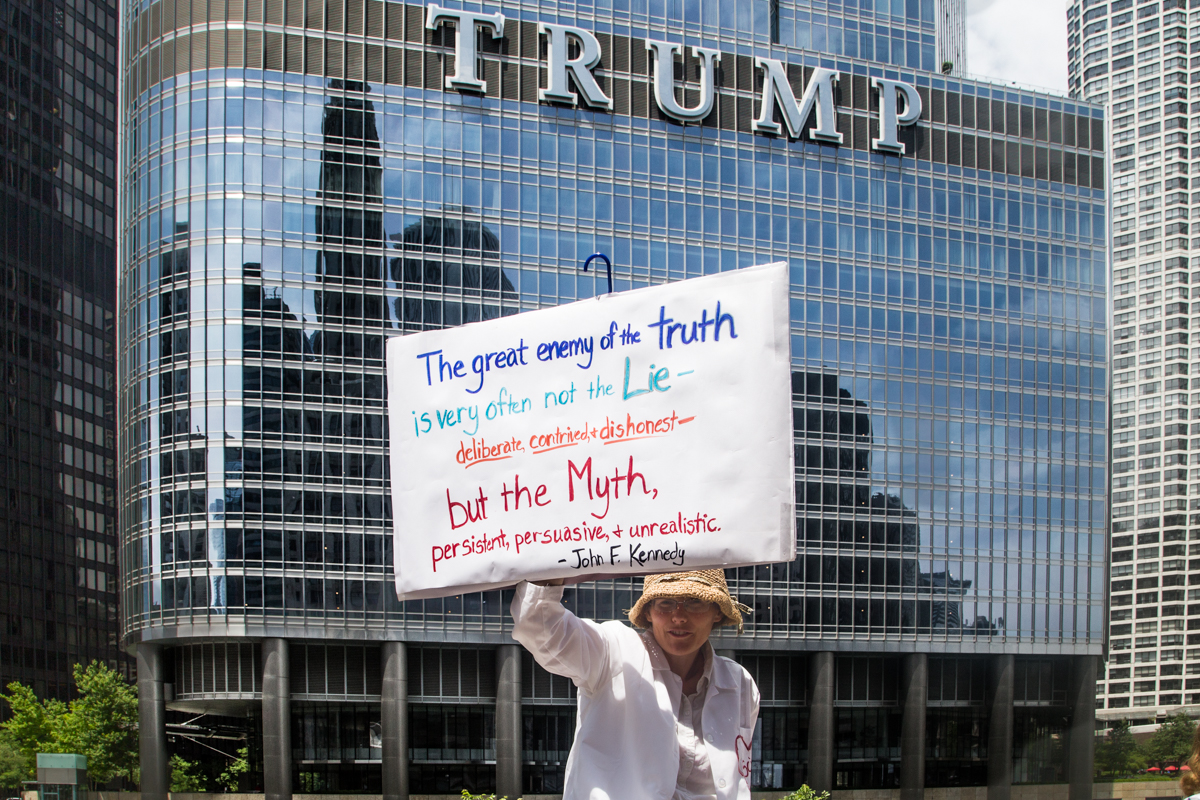 TRUMP
The great enemy of the truth
is very often not the Lie –
deliberate, contrived, + dishonest –
but the Myth,
persistent, persuasive, + unrealistic.
- John F. Kennedy